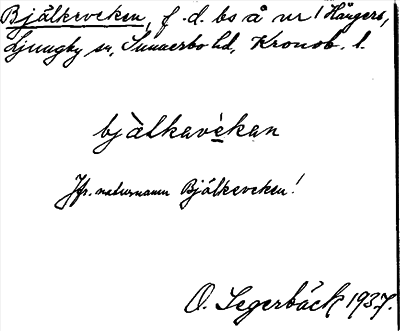 Bjälkeveken, f.d. bs å nr 1 Hångers,
Ljungby sn, Sunnerbo hd, Kronob. l.
bjàlkavékan
Jfr. naturnamn Bjälkeveken!
O. Segerbäck 1937.